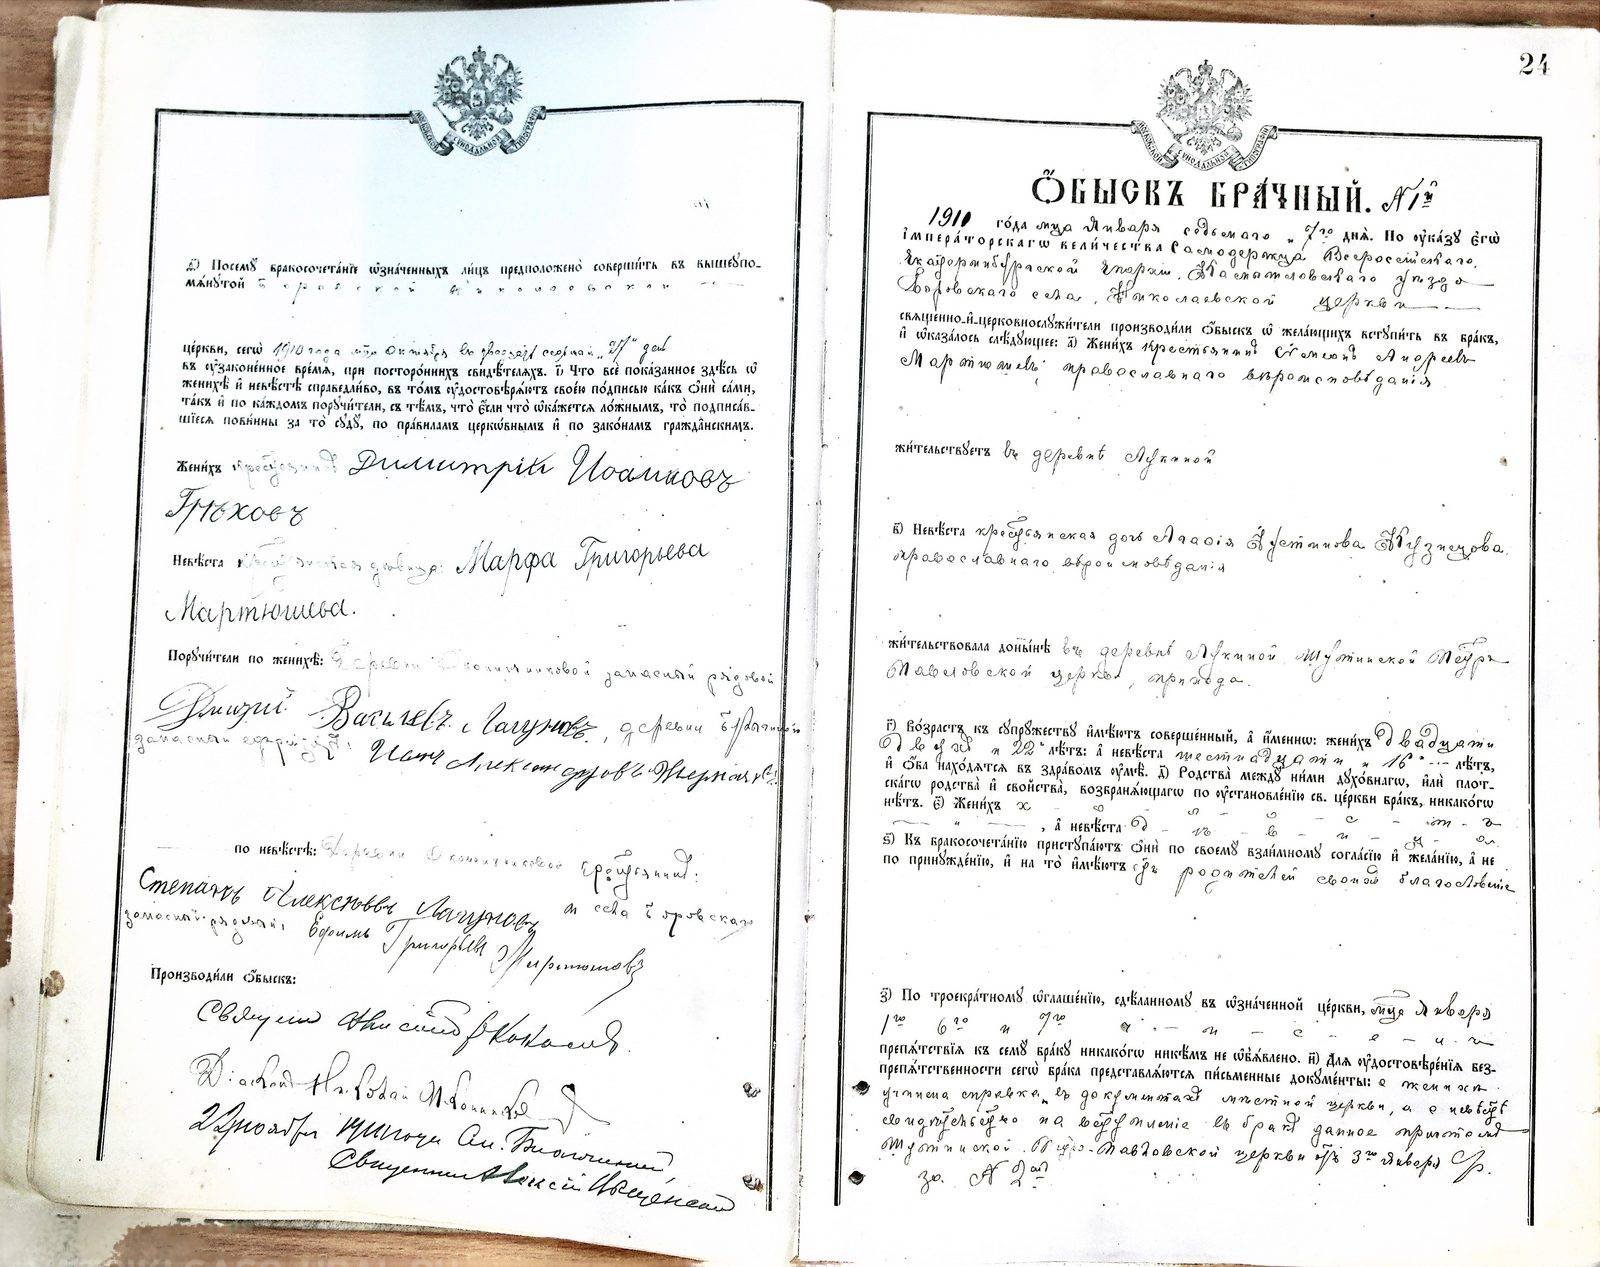 МОСКОВСКОЙ СИНОДАЛЬНОЙ ТИПОГРАФІИ
д҃) Посемꙋ̀ бракосочета́нїе ѡ҆зна́ченныхъ ли́цъ предположено̀ соверши́ть въ вышеꙋпо-
мѧ́нꙋтой Боровской Николаевской
це́ркви, сегѡ̀ 1910 года м-ца Октября въ двадцать седьмой „27“ день
въ ᲂу҆зако́ненное вре́мѧ, при посторо́ннихъ свидѣ́телѧхъ. і҃) Что̀ всѐ пока́занное здѣ́сь ѡ҆
женихѣ̀ и҆ невѣ́стѣ справедли́во, въ то́мъ ᲂу҆достовѣрѧ́ютъ свое́ю по́дписью ка́къ ѻ҆нѝ са́ми,
та́къ и҆ по ка́ждомъ порꙋчи́тели, съ тѣ́мъ, что̀ є҆́сли что̀ ѡ҆ка́жетсѧ ло́жнымъ, то̀ подписа́в-
шїесѧ пови́нны за то̀ сꙋдꙋ̀, по пра́виламъ церкѡ́внымъ и҆ по зако́намъ гражда́нскимъ.
Жени́хъ крестьянинъ Димитрій Иоанновъ
Грѣховъ
Невѣ́ста крестьянская дѣвица: Марфа Григорьева
Мартюшева.
Порꙋчи́тели по женихѣ̀: Деревни запасный рядовой
Дмитрій Васильевъ Лагуновъ, деревни
запасный Иванъ Александровъ
по невѣ́стѣ: Деревни крестьянинъ:
Степанъ Алексѣевъ Лагуновъ и села Боровскаго
запасный рядовой, Ефимъ Григорьевъ Мартюшовъ
Производи́ли ѻ҆́быскъ:
Священникъ
Діаконъ Николай
22 ноября 1910 года
Священникъ Алексій
24
МОСКОВСКОЙ СИНОДАЛЬНОЙ ТИПОГРАФІИ
Ѻ҆́БЫСКЪ БРА́ЧНЫЙ. №1й
1911 го́да м-ца Января седьмаго „7го днѧ̀. По ᲂу҆ка́зꙋ є҆гѡ̀
і҆мпера́торскагѡ вели́чества Самодержца Всероссійскаго,
Екатеринбургской Епархіи, Камышловскаго уѣзда
Боровскаго села, Николаевской церкви
свѧще́нно-и҆-церковнослꙋжи́тели производи́ли ѻ҆́быскъ ѡ҆ жела́ющихъ встꙋпи́ть въ бра́къ,
и҆ ѡ҆каза́лось слѣ́дꙋющее: а҃) Жени́хъ крестьянинъ Симеонъ Андреевъ
Мартюшевъ, православнаго вѣроисповѣданія
жи́тельствꙋетъ въ деревнѣ Лукиной
в҃) Невѣ́ста крестьянская дочь Агафія Іустинова Кузнецова,
православнаго вѣроисповѣданія
жи́тельствовала доны́нѣ въ деревнѣ Лукиной Шутинской Петро
Павловской церкви, прихода.
г҃) Во́зрастъ къ сꙋпрꙋ́жествꙋ и҆мѣ́ютъ соверше́нный, а҆ и҆́менно: жени́хъ двадцати
двухъ и 22х лѣ́тъ: а҆ невѣ́ста шестнадцати и 16 лѣ́тъ,
и҆ ѻ҆́ба нахо́дѧтсѧ въ здра́вомъ ᲂу҆мѣ̀. д҃) Родства̀ междꙋ̀ ни́ми дꙋхо́внагѡ, и҆лѝ пло́т-
ска́гѡ родства̀ и҆ сво́йства, возбранѧ́ющагѡ по ᲂу҆становле́нїю св. це́ркви бра́къ, никако́гѡ
нѣ́тъ. є҃) Жени́хъ х - о - л - о - с - т - ъ
, а҆ невѣ́ста д - ѣ - в - и - ц - а.
ѕ҃) Къ бракосочета́нїю пристꙋпа́ютъ ѻ҆нѝ по своемꙋ̀ взаи́мномꙋ согла́сїю и҆ жела́нїю, а҆ не
по принꙋжде́нїю, и҆ на то̀ и҆мѣ́ютъ отъ родителей своихъ благословеніе
з҃) По троекра́тномꙋ ѡ҆глаше́нїю, сдѣ́ланномꙋ въ ѡ҆зна́ченной це́ркви, м-ца Января
1го 6го и 7го ч - и - с - е - л - ъ
препѧ́тствїѧ къ семꙋ̀ бра́кꙋ никако́гѡ никѣ́мъ не ѡ҆б̾ѧ́влено. и҃) Длѧ̀ ᲂу҆достовѣре́нїѧ без-
препѧ́тственности сегѡ̀ бра́ка представлѧ́ютсѧ пи́сьменные докꙋме́нты: о женихѣ
учинена справка въ документахъ мѣстной церкви, а о невѣстѣ
свидѣтельство на вступленіе въ бракъ данное причтомъ
Шутинской Петро-Павловской церкви отъ 3го Января
за № 2мъ